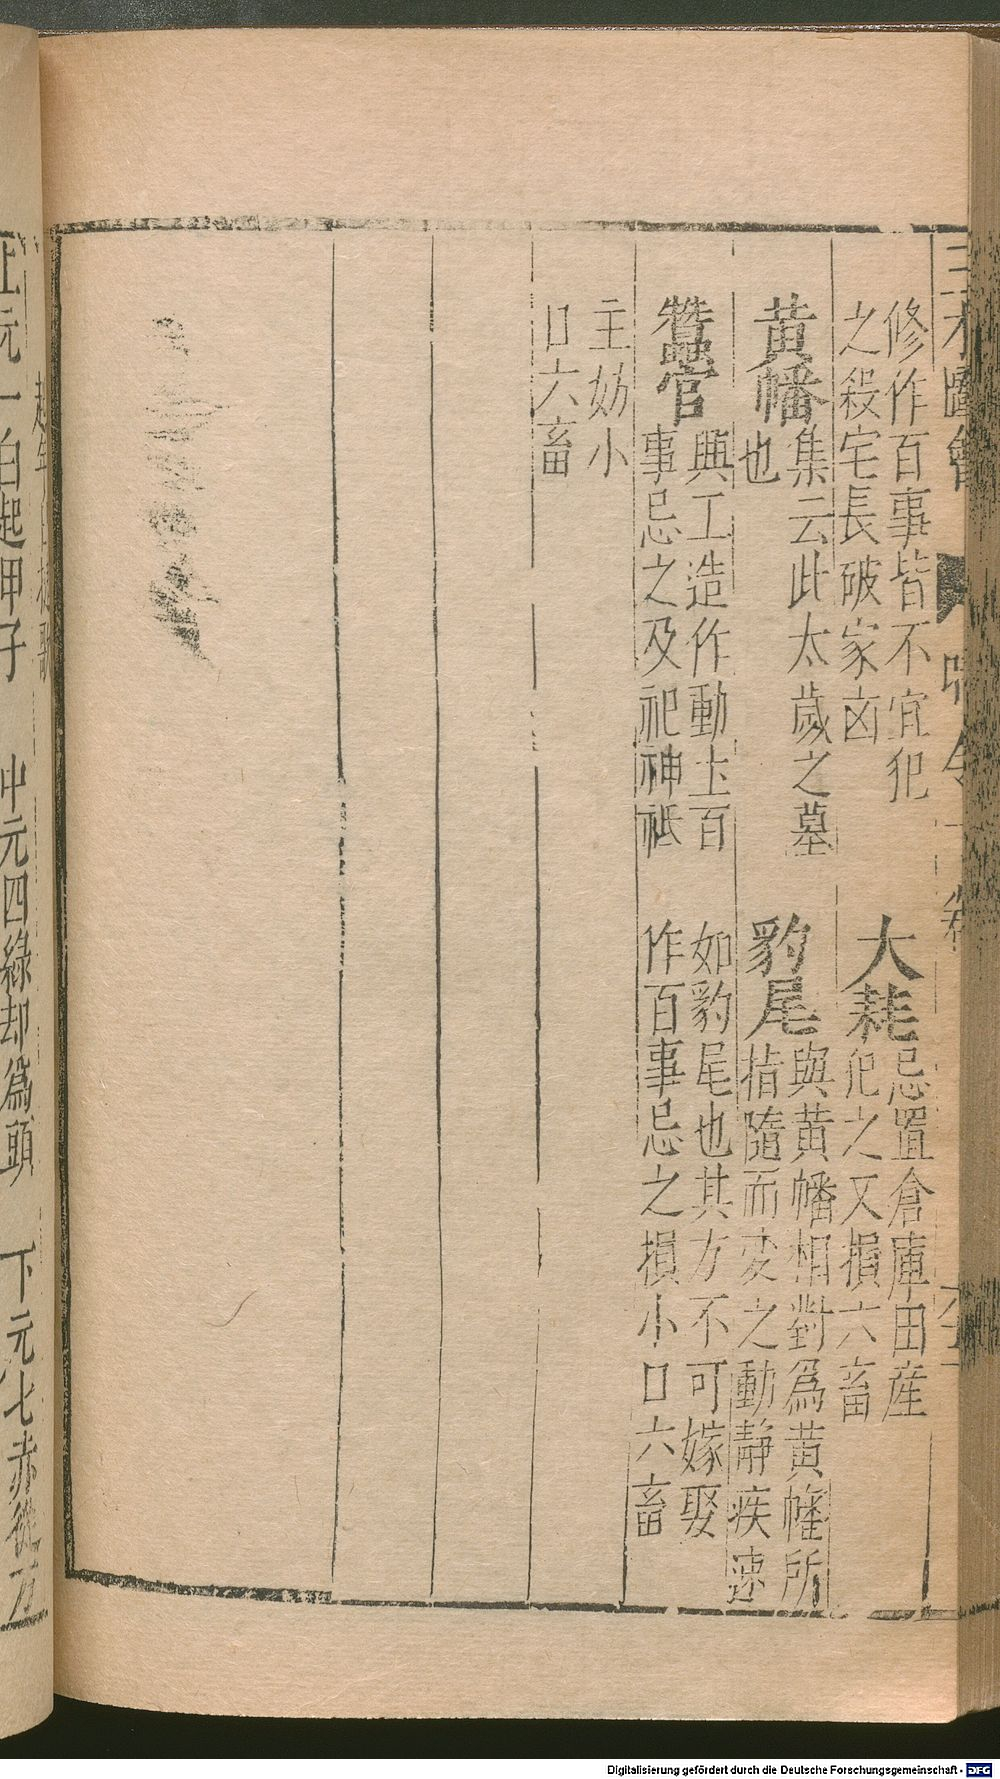 三才圖會 時令 一卷
修作百事皆不宜犯
之殺宅長破家凶
大耗忌置倉庫田産
犯之又損六畜
黃幡集云此太歲之墓
也
豹尾與黃幡相對爲黃幡所
指隨而変之動靜疾速
蠶官與工造作動土百
事忌之及祀神祗
如豹尾也其方不可嫁娶
作百事忌之損小口六畜
主妨小
口六畜
上元一白起甲子 中元四綠却爲頭 下元七赤從
Digitalisierung gefördert durch die Deutsche Forschungsgemeinschaft - DFG